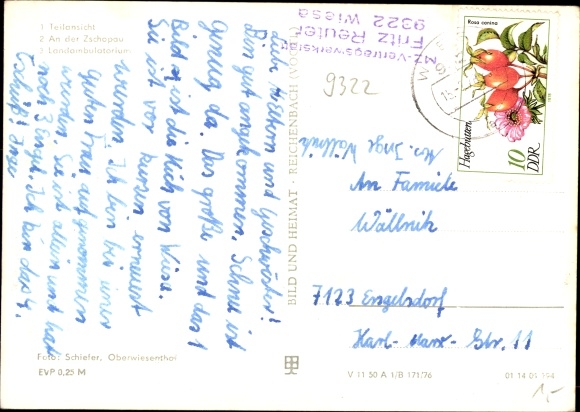 1 Teilansicht
2 An der Zschopau
3 Landambulatorium
Liebe Eltern und Geschwister!
Bin gut angekommen. Schnee ist
genug da. Das große und das 1
Bild ist die Kirche von Wiesa.
Sie ist vor kurzem erneuert
wurden. Ich bin bei einer
guten Frau aufgenommen
worden. Sie ist allein und hat
noch 3 Ich bin das 4.
Tschüß! Inge
Foto: Schiefer, Oberwiesenthal
EVP 0,25 M
BILD UND HEIMAT · REICHENBACH (VOGTL)
MZ-Vertragswerkstatt
Fritz Reuter
9322 Wiesa
9322
Rosa canina
Hagebutten
10
DDR
Abs. Inge Wällnik
An Familie
Wällnik
7123 Engelsdorf
Karl-Marx-Str. 11
V 11 50 A 1/B 171/76
01 14 03 194
1,-